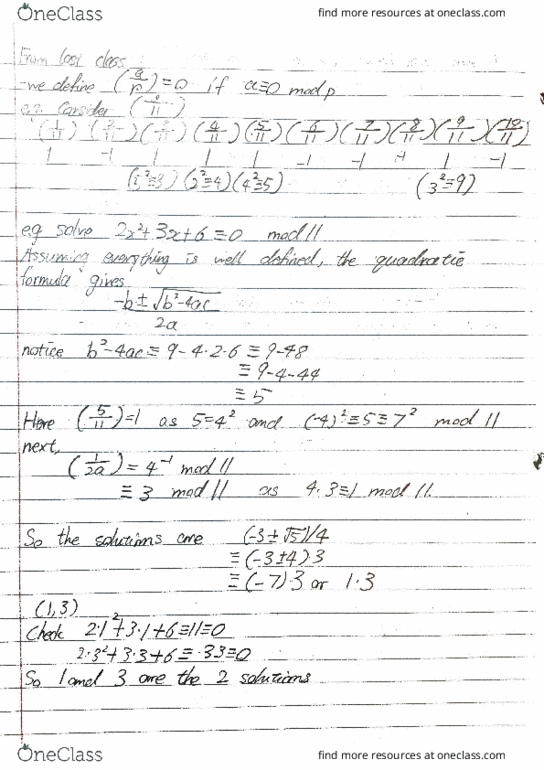 OneClass
find more resources at oneclass.com
From last class
-we define (a/p)=0 if a≡0 mod p
e.g. Consider (a/11)
(1/11) (2/11) (3/11) (4/11) (5/11) (6/11) (7/11) (8/11) (9/11) (10/11)
1 -1 1 1 1 -1 -1 -1 1 -1
(2²≡4) (4²≡5) (3²≡9)
e.g solve 2x²+3x+6≡0 mod 11
Assuming everything is well defined, the quadratic
formula gives
-b±√b²-4ac
2a
notice b²-4ac ≡ 9-4·2·6 ≡ 9-48
≡ 9-4-44
≡ 5
Here (5/11)=1 as 5≡4² and (-4)²≡5≡7² mod 11
next,
(1/2a) = 4⁻¹ mod 11
≡ 3 mod 11 as 4·3≡1 mod 11.
So the solutions are (-3±√5)/4
≡(-3±4)·3
≡(-7)·3 or 1·3
(1,3)
Check 2·1²+3·1+6≡11≡0
2·3²+3·3+6≡33≡0
So 1 and 3 are the 2 solutions
OneClass
find more resources at oneclass.com